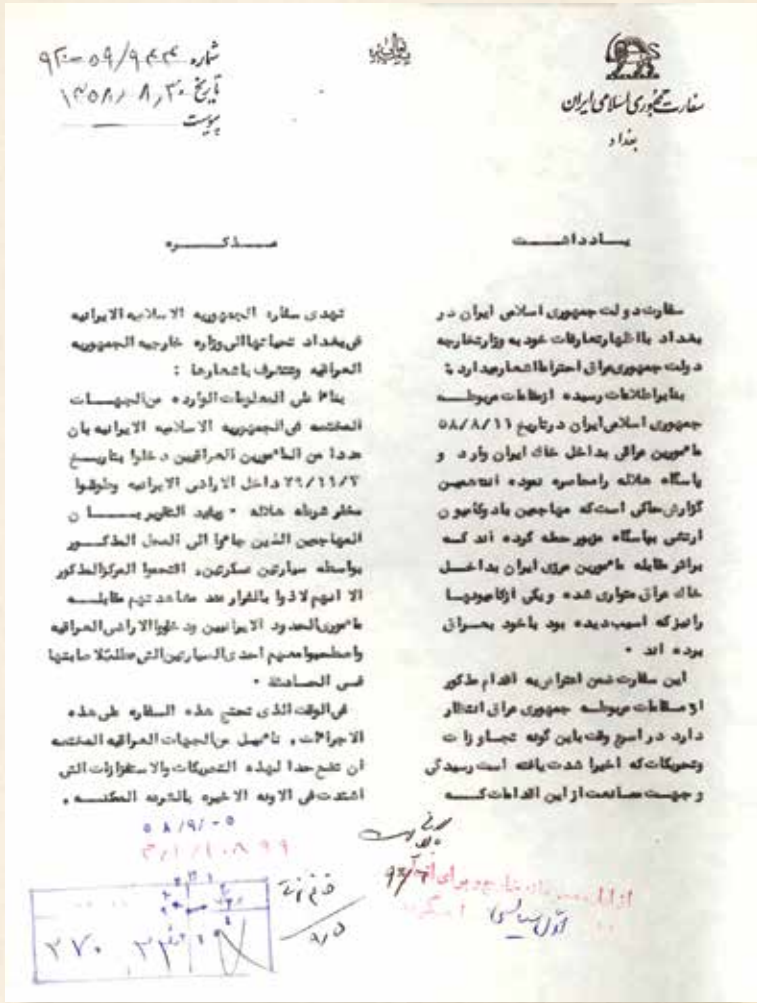 سفارت جمهوری اسلامی ایران
بغداد
بسمه تعالی
شماره ۹۴۴/۵۹-۹۲۰
تاریخ ۱۳۵۸/۸/۳۰
پیوست
یادداشت
سفارت دولت جمهوری اسلامی ایران در
بغداد با اظهار تعارفات خود به وزارتخارجه
دولت جمهوری عراق احتراما اشعار میدارد :
بنابر اطلاعات رسیده از مقامات مربوطه
جمهوری اسلامی ایران در تاریخ ۵۸/۸/۱۱
مامورین عراقی بداخل خاک ایران وارد و
پاسگاه هلاله را محاصره نموده اند همین
گزارش حاکی است که مهاجمین با دو کامیون
ارتشی بپاسگاه مزبور حمله کرده اند که
براثر مقابله مامورین مرزی ایران بداخل
خاک عراق متواری شده و یکی از کامیونها
را نیز که آسیب دیده بود با خود بعراق
برده اند .
این سفارت ضمن اعتراض به اقدام مذکور
از مقامات مربوطه جمهوری عراق انتظار
دارد در اسرع وقت باین گونه تجاوزات
وتحریکات که اخیرا شدت یافته است رسیدگی
و جهت ممانعت از این اقدامات که
مذكـــره
تهدى سفاره الجمهوريه الاسلاميه الايرانيه
فى بغداد تحياتها الى وزاره خارجيه الجمهوريه
العراقيه وتتشرف باشعارها :
بناءا على المعلومات الوارده من الجهات
المختصه فى الجمهوريه الاسلاميه الايرانيه بان
عددا من المأمورين العراقيين دخلوا بتاريخ
٧٩/١١/٢ داخل الاراضى الايرانيه وطوقوا
مخفر شرطه هلاله . يفيد التقرير بان
المهاجمين الذين جاءوا الى المحل المذكور
بواسطه سيارتين عسكرتين، اقتحموا المركز المذكور
الا انهم لاذوا بالفرار عند مشاهدتهم مقابله
مأمورى الحدود الايرانيين ودخلوا الاراضى العراقيه
واصطحبوا معهم احدى السيارتين التى عطلت لاصابتها
فى الحادثة .
فى الوقت الذى تحتج هذه السفاره على هذه
الاجراءات، تأميل من الجهات العراقيه المختصه
ان تضع حدا لهذه التحريكات والاستفزازات التى
اشتدت فى الاونه الاخيره بالسرعه الممكنه .